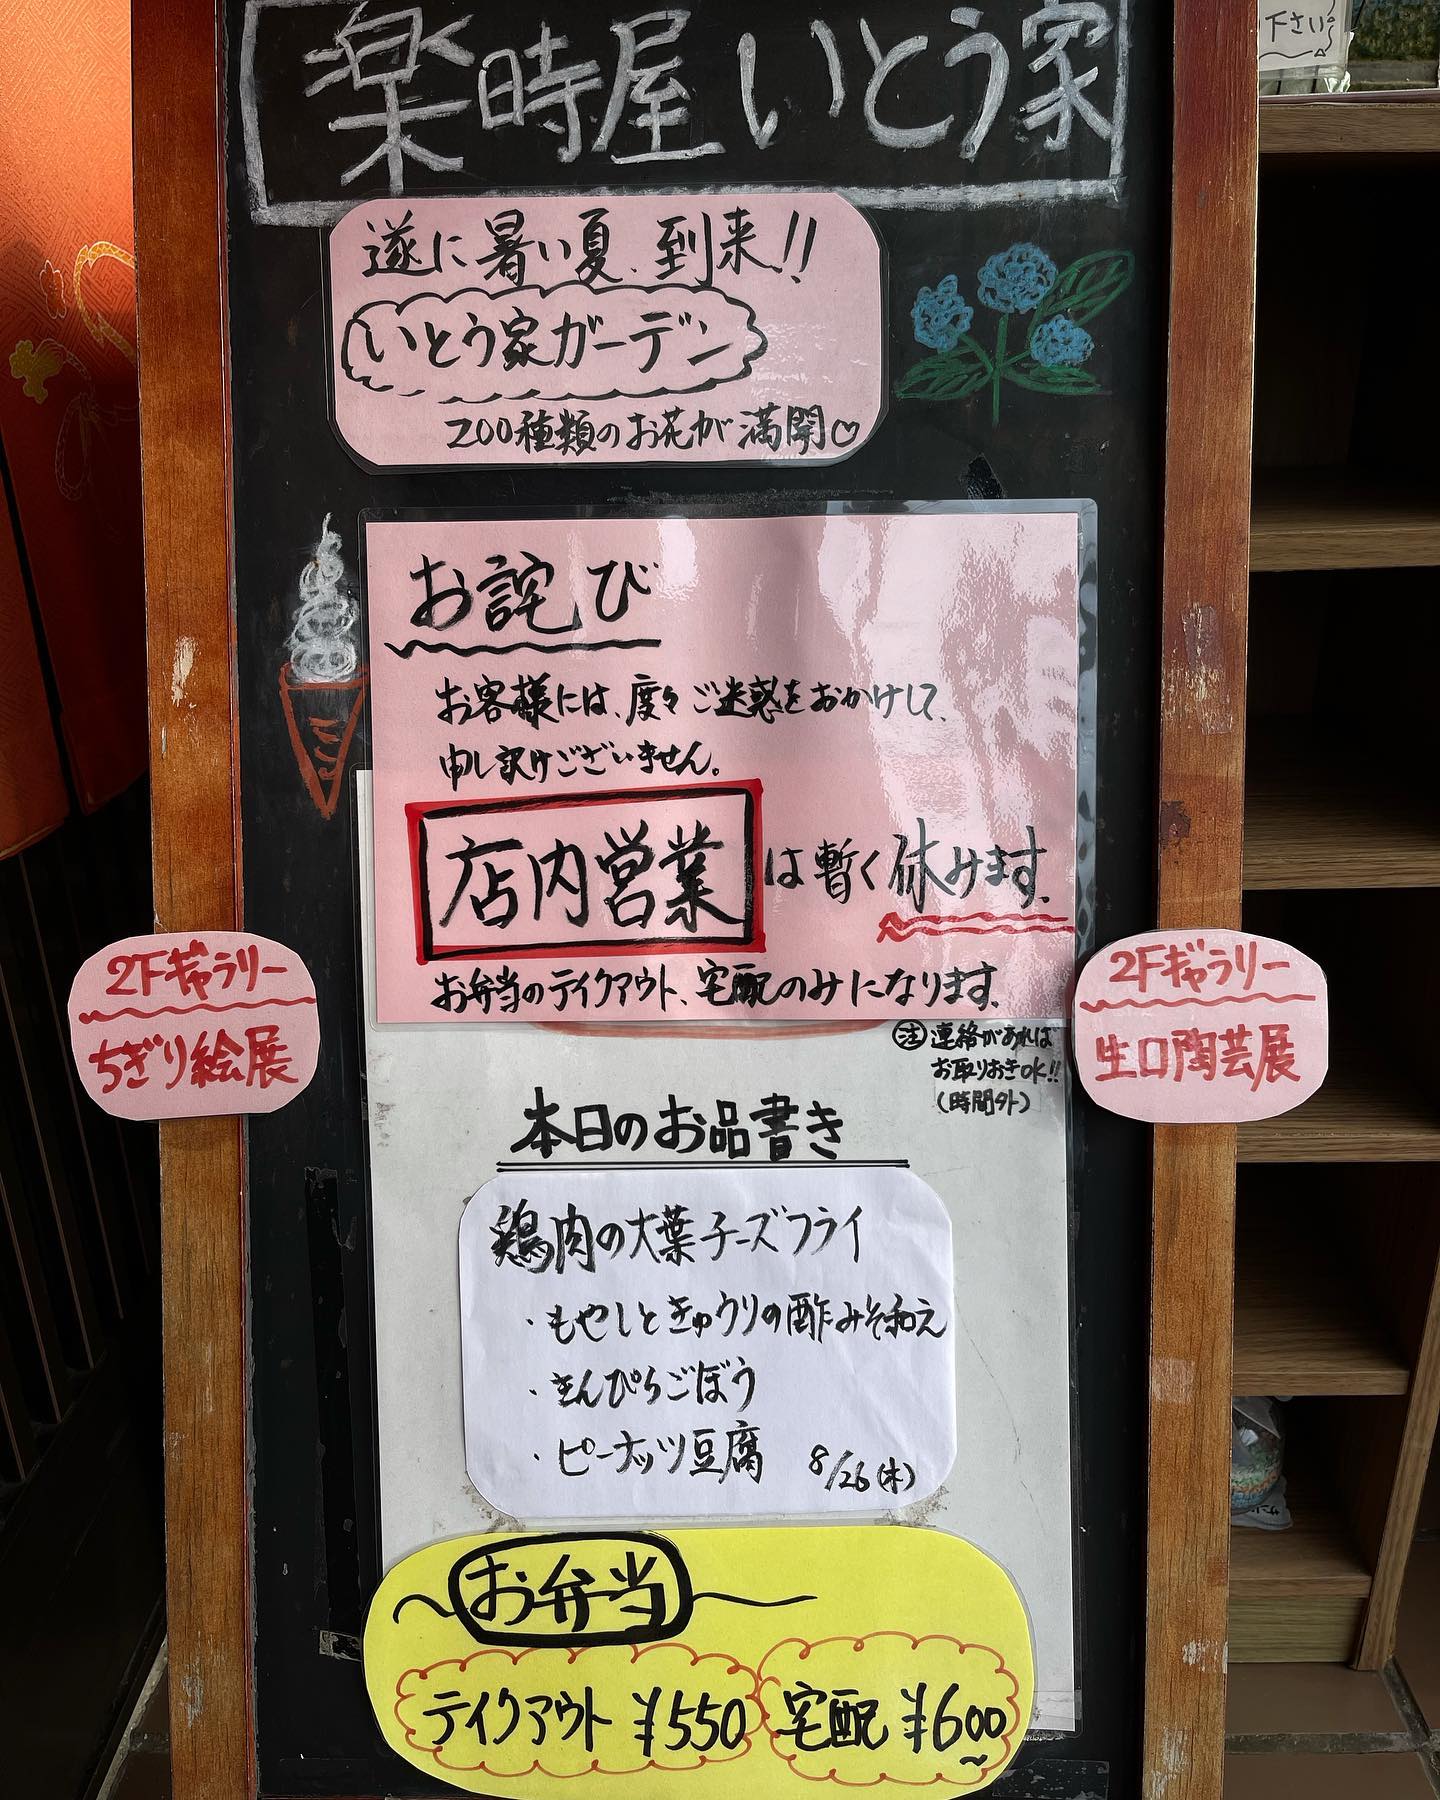 楽時屋 いとう家
下さい
遂に暑い夏、到来!!
いとう家ガーデン
200種類のお花が満開♡
お詫び
お客様には、度々ご迷惑をおかけして、
申し訳けございません。
店内営業は暫く休みます。
お弁当のテイクアウト、宅配のみになります。
注 連絡があれば
お取りおきOK!!
(時間外)
2Fギャラリー
ちぎり絵展
2Fギャラリー
生口陶芸展
本日のお品書き
鶏肉の大葉チーズフライ
・もやしときゅうりの酢みそ和え
・きんぴらごぼう
・ピーナッツ豆腐 8/26(木)
お弁当
テイクアウト ¥550
宅配 ¥600~